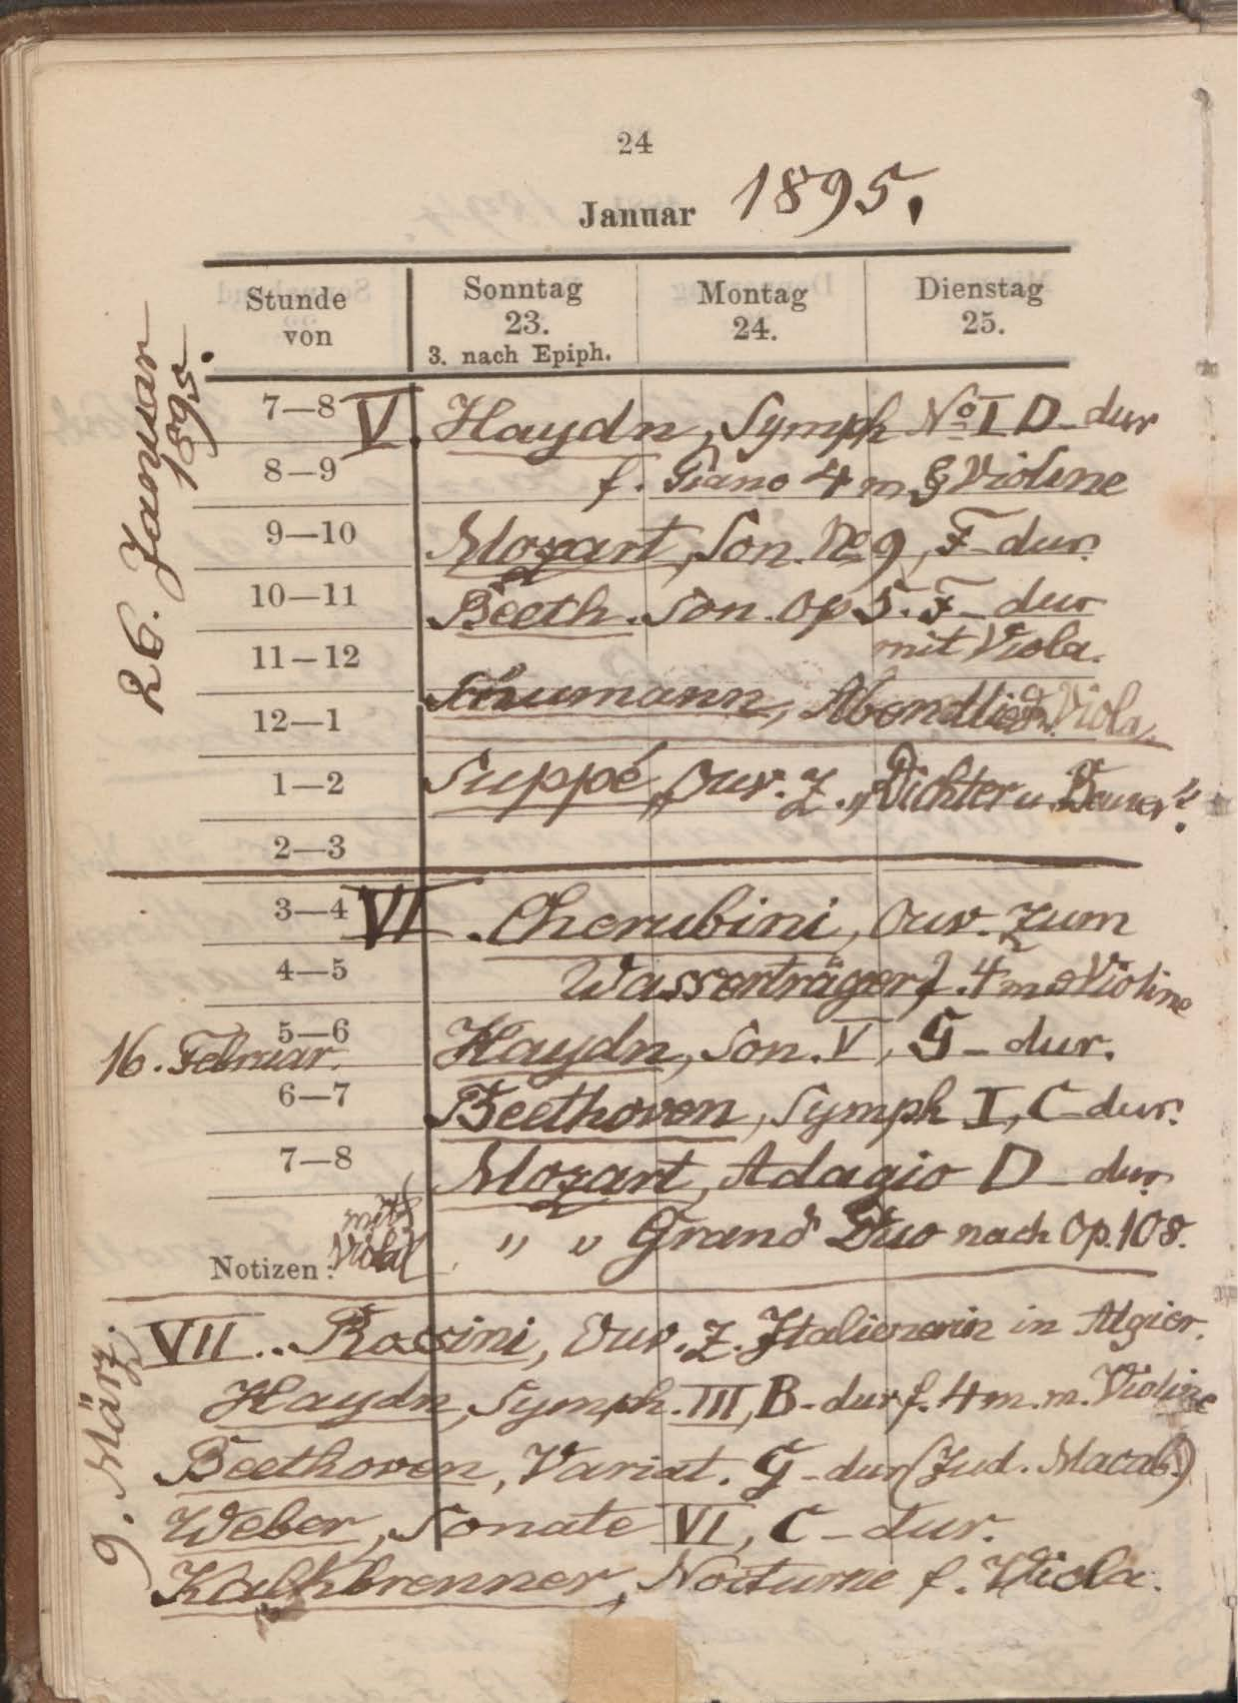 24
Januar 1895.
Stunde von
Sonntag 23. 3. nach Epiph.
Montag 24.
Dienstag 25.
26. Januar 1895.
7—8 V. Haydn, Symph No I D-dur
8—9 f. Piano 4 m & Violine
9—10 Mozart, Son. No 9, F-dur.
10—11 Beeth. Son. Op 5. F-dur
11—12 mit Viola.
12—1 Schumann, Abendlied f. Viola.
1—2 Suppé, Ouv. z. „Dichter u. Bauer".
2—3
3—4 VI. Cherubini, Ouv. zum
4—5 Wasserträger f. 4 m & Violine
5—6
16. Februar. Haydn, Son. V, G-dur.
6—7 Beethoven, Symph I, C-dur.
7—8 Mozart, Adagio D-dur
mit Viola „ „ Grand Duo nach Op. 108.
Notizen:
9. März.
VII.. Rossini, Ouv. z. Italienerin in Algier.
Haydn, Symph. III, B-dur f. 4 m. m. Violine
Beethoven, Variat. G-dur (Jud. Macab.)
Weber, Sonate VI, C-dur.
Kalkbrenner, Nocturne f. Viola.